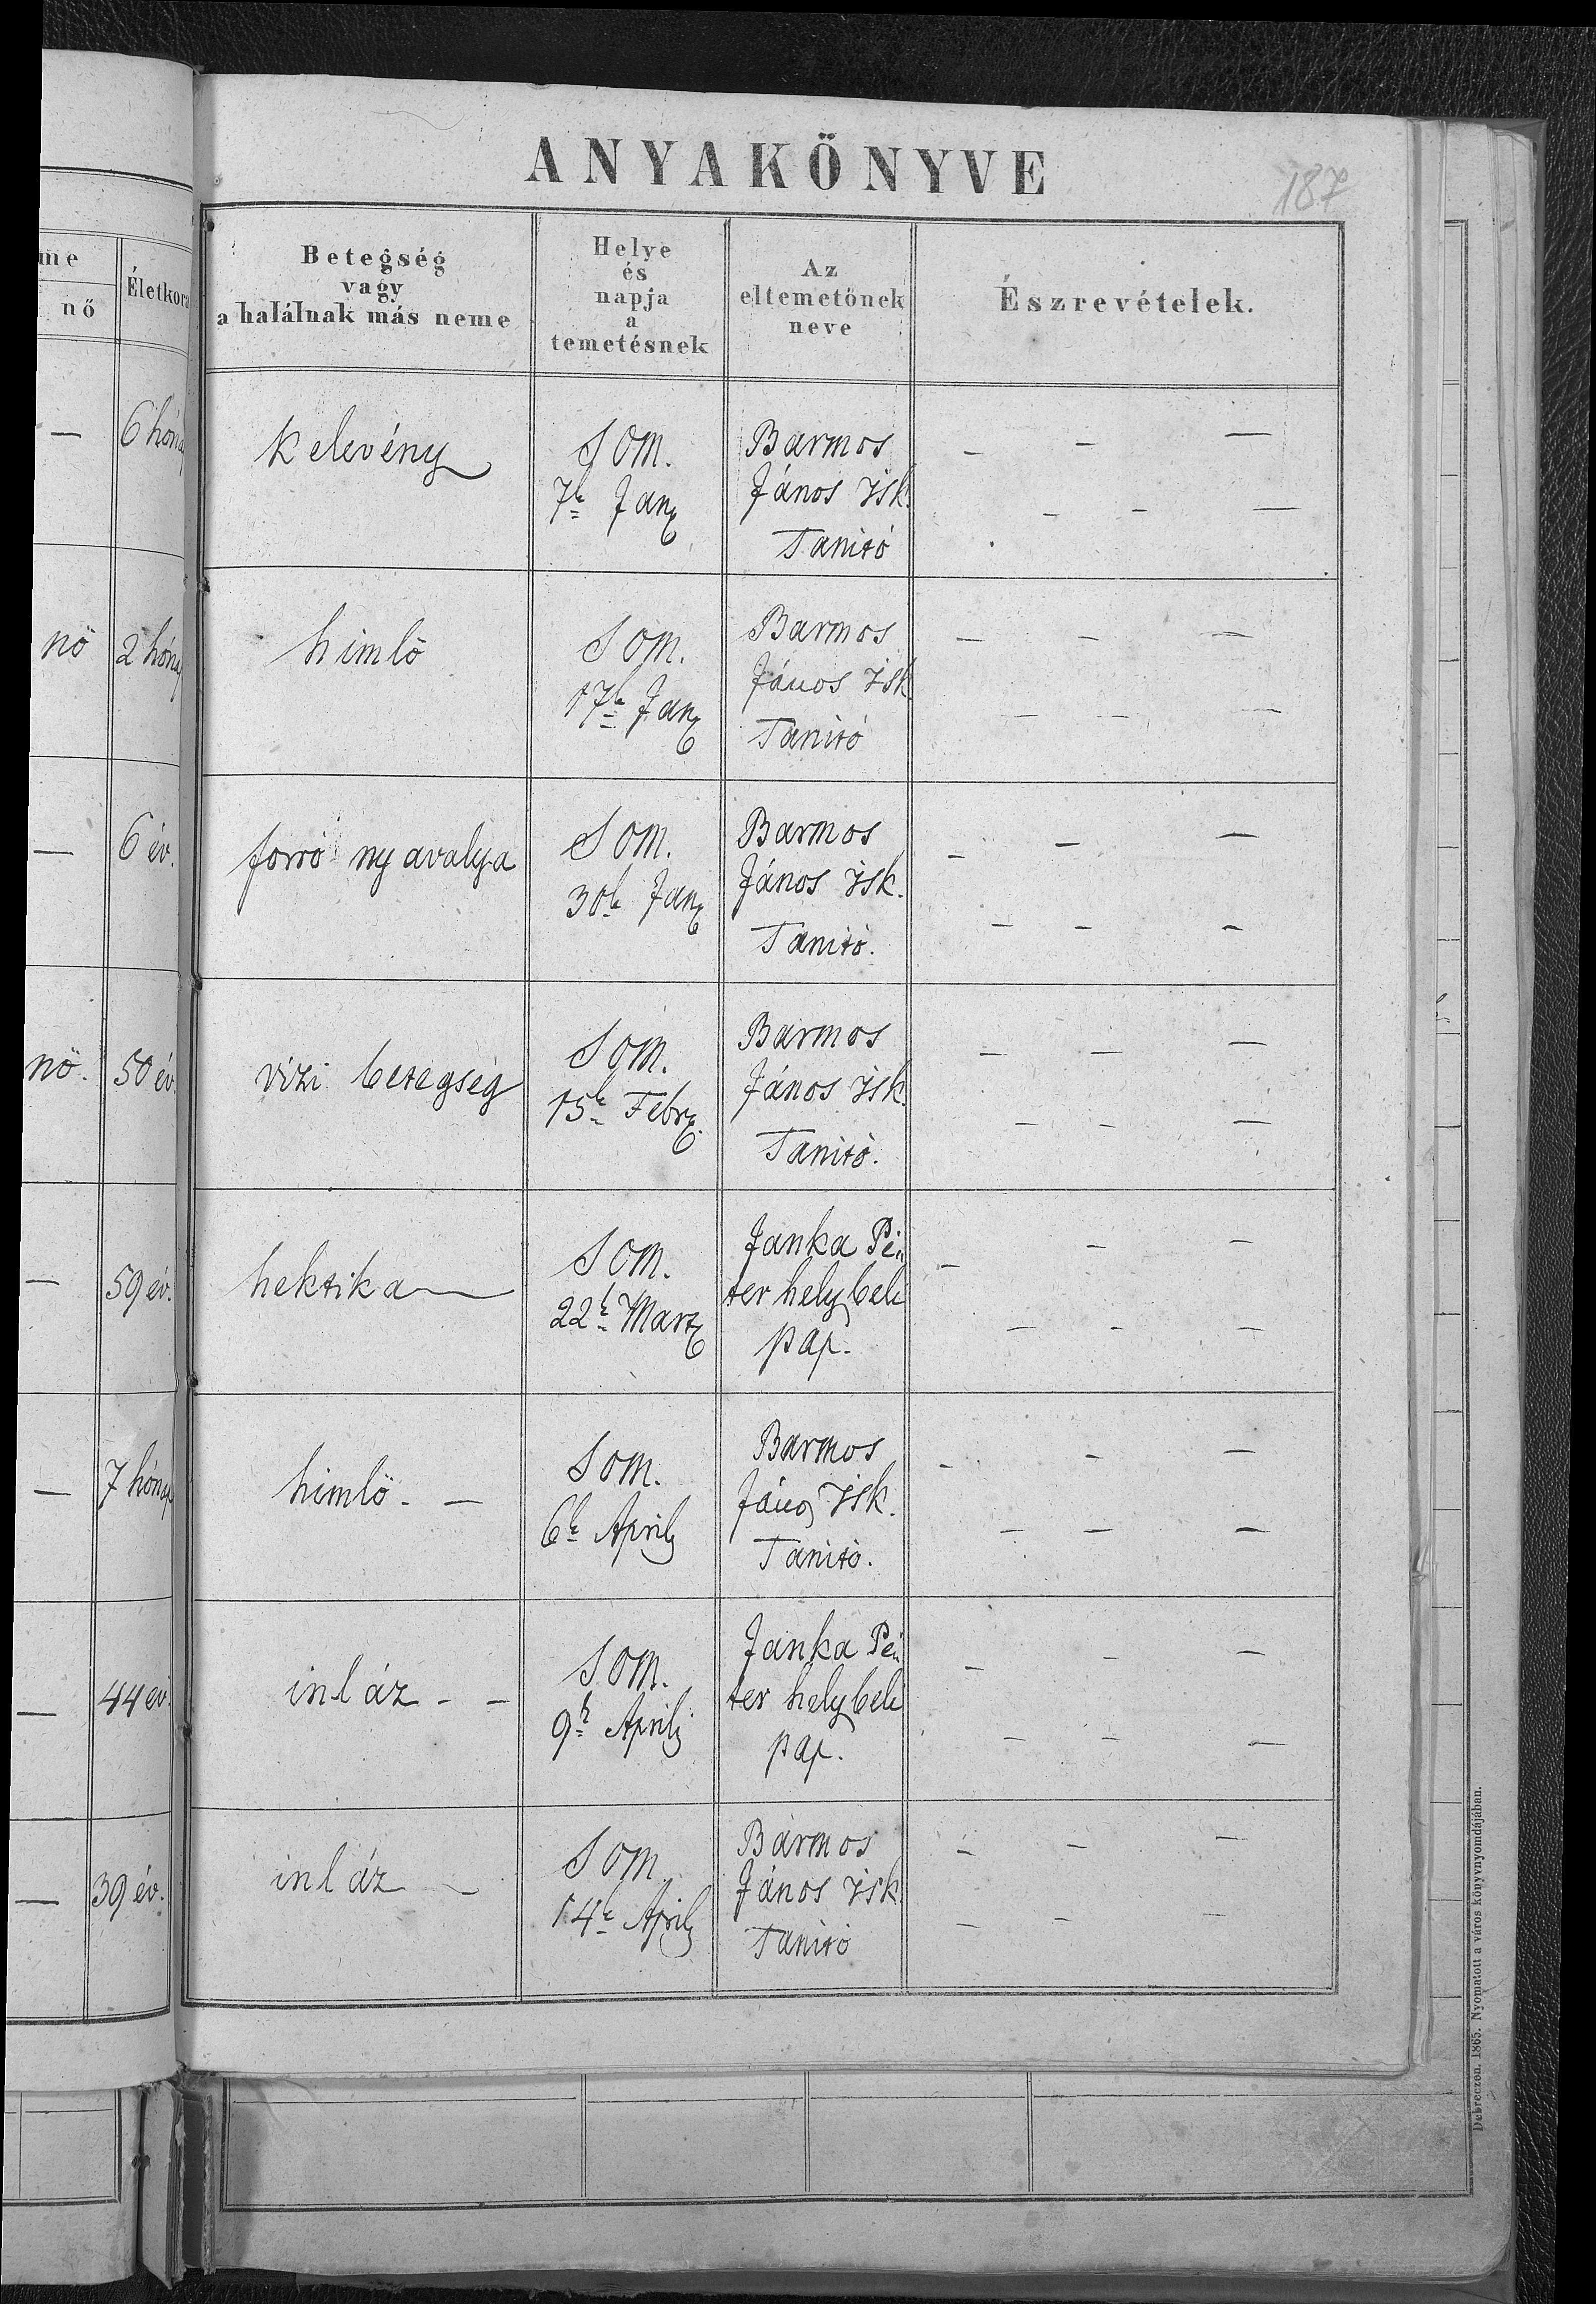 ANYAKÖNYVE
187
me
nő
Életkora
Betegség
vagy
a halálnak más neme
Helye
és
napja
a
temetésnek
Az
eltemetőnek
neve
Észrevételek.
— 6 hónap
kelevény
Som.
7k Jan
Barmos
János isk.
Tanitó
— — —
— — —
nö 2 hónap
himlö
Som.
17k Jan
Barmos
János isk
Tanitó
— — —
— — —
— 6 év.
forró nyavalya
Som.
30k Jan
Barmos
János isk.
Tanitó.
— — —
— — —
nö. 50 év.
vizi betegség
Som.
15k Febr.
Barmos
János isk.
Tanitó.
— — —
— — —
— 59 év.
hektika —
Som.
22k Mart
Janka Pé„
ter helybeli
pap.
— — —
— — —
— 7 hónap
himlö. —
Som.
6k April
Barmos
János isk.
Tanitó.
— — —
— — —
— 44 év.
inláz - -
Som.
9k April
Janka Pé„
ter helybeli
pap.
— — —
— — —
— 39 év.
inláz —
Som
14k April
Bármos
János isk
Tanitó
— — —
— — —
Debreczen. 1865. Nyomatott a város könyvnyomdájában.